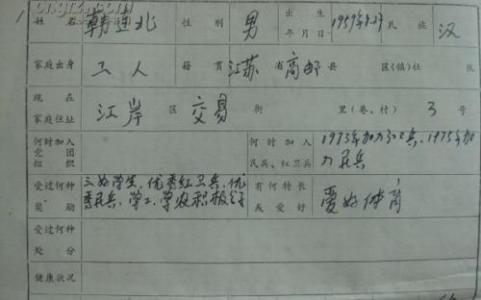 姓名 韩连北 性别 男 出生年月日 1957.8.29 民族 汉
家庭出身 工人 籍贯 江苏省高邮县 区(镇)社 队
现在家庭住址 江岸区 交易街 里(巷、村) 3号
何时加入党团组织 何时加入民兵、红卫兵 1973年加入红卫兵、1975年加入民兵
受过何种奖励 三好学生、优秀红卫兵、优秀民兵、学工、学农积极分子 有何特长及爱好 爱好体育
受过何种处分
健康状况